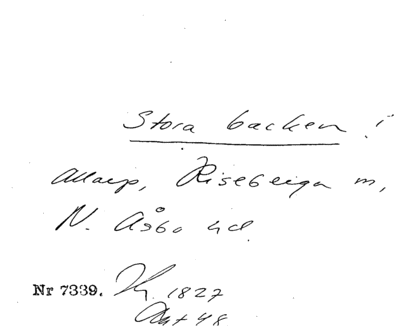 Stora backen !
Allarp, Riseberga m,
N. Åsbo hd.
Nr 7339. 1827
Akt 48